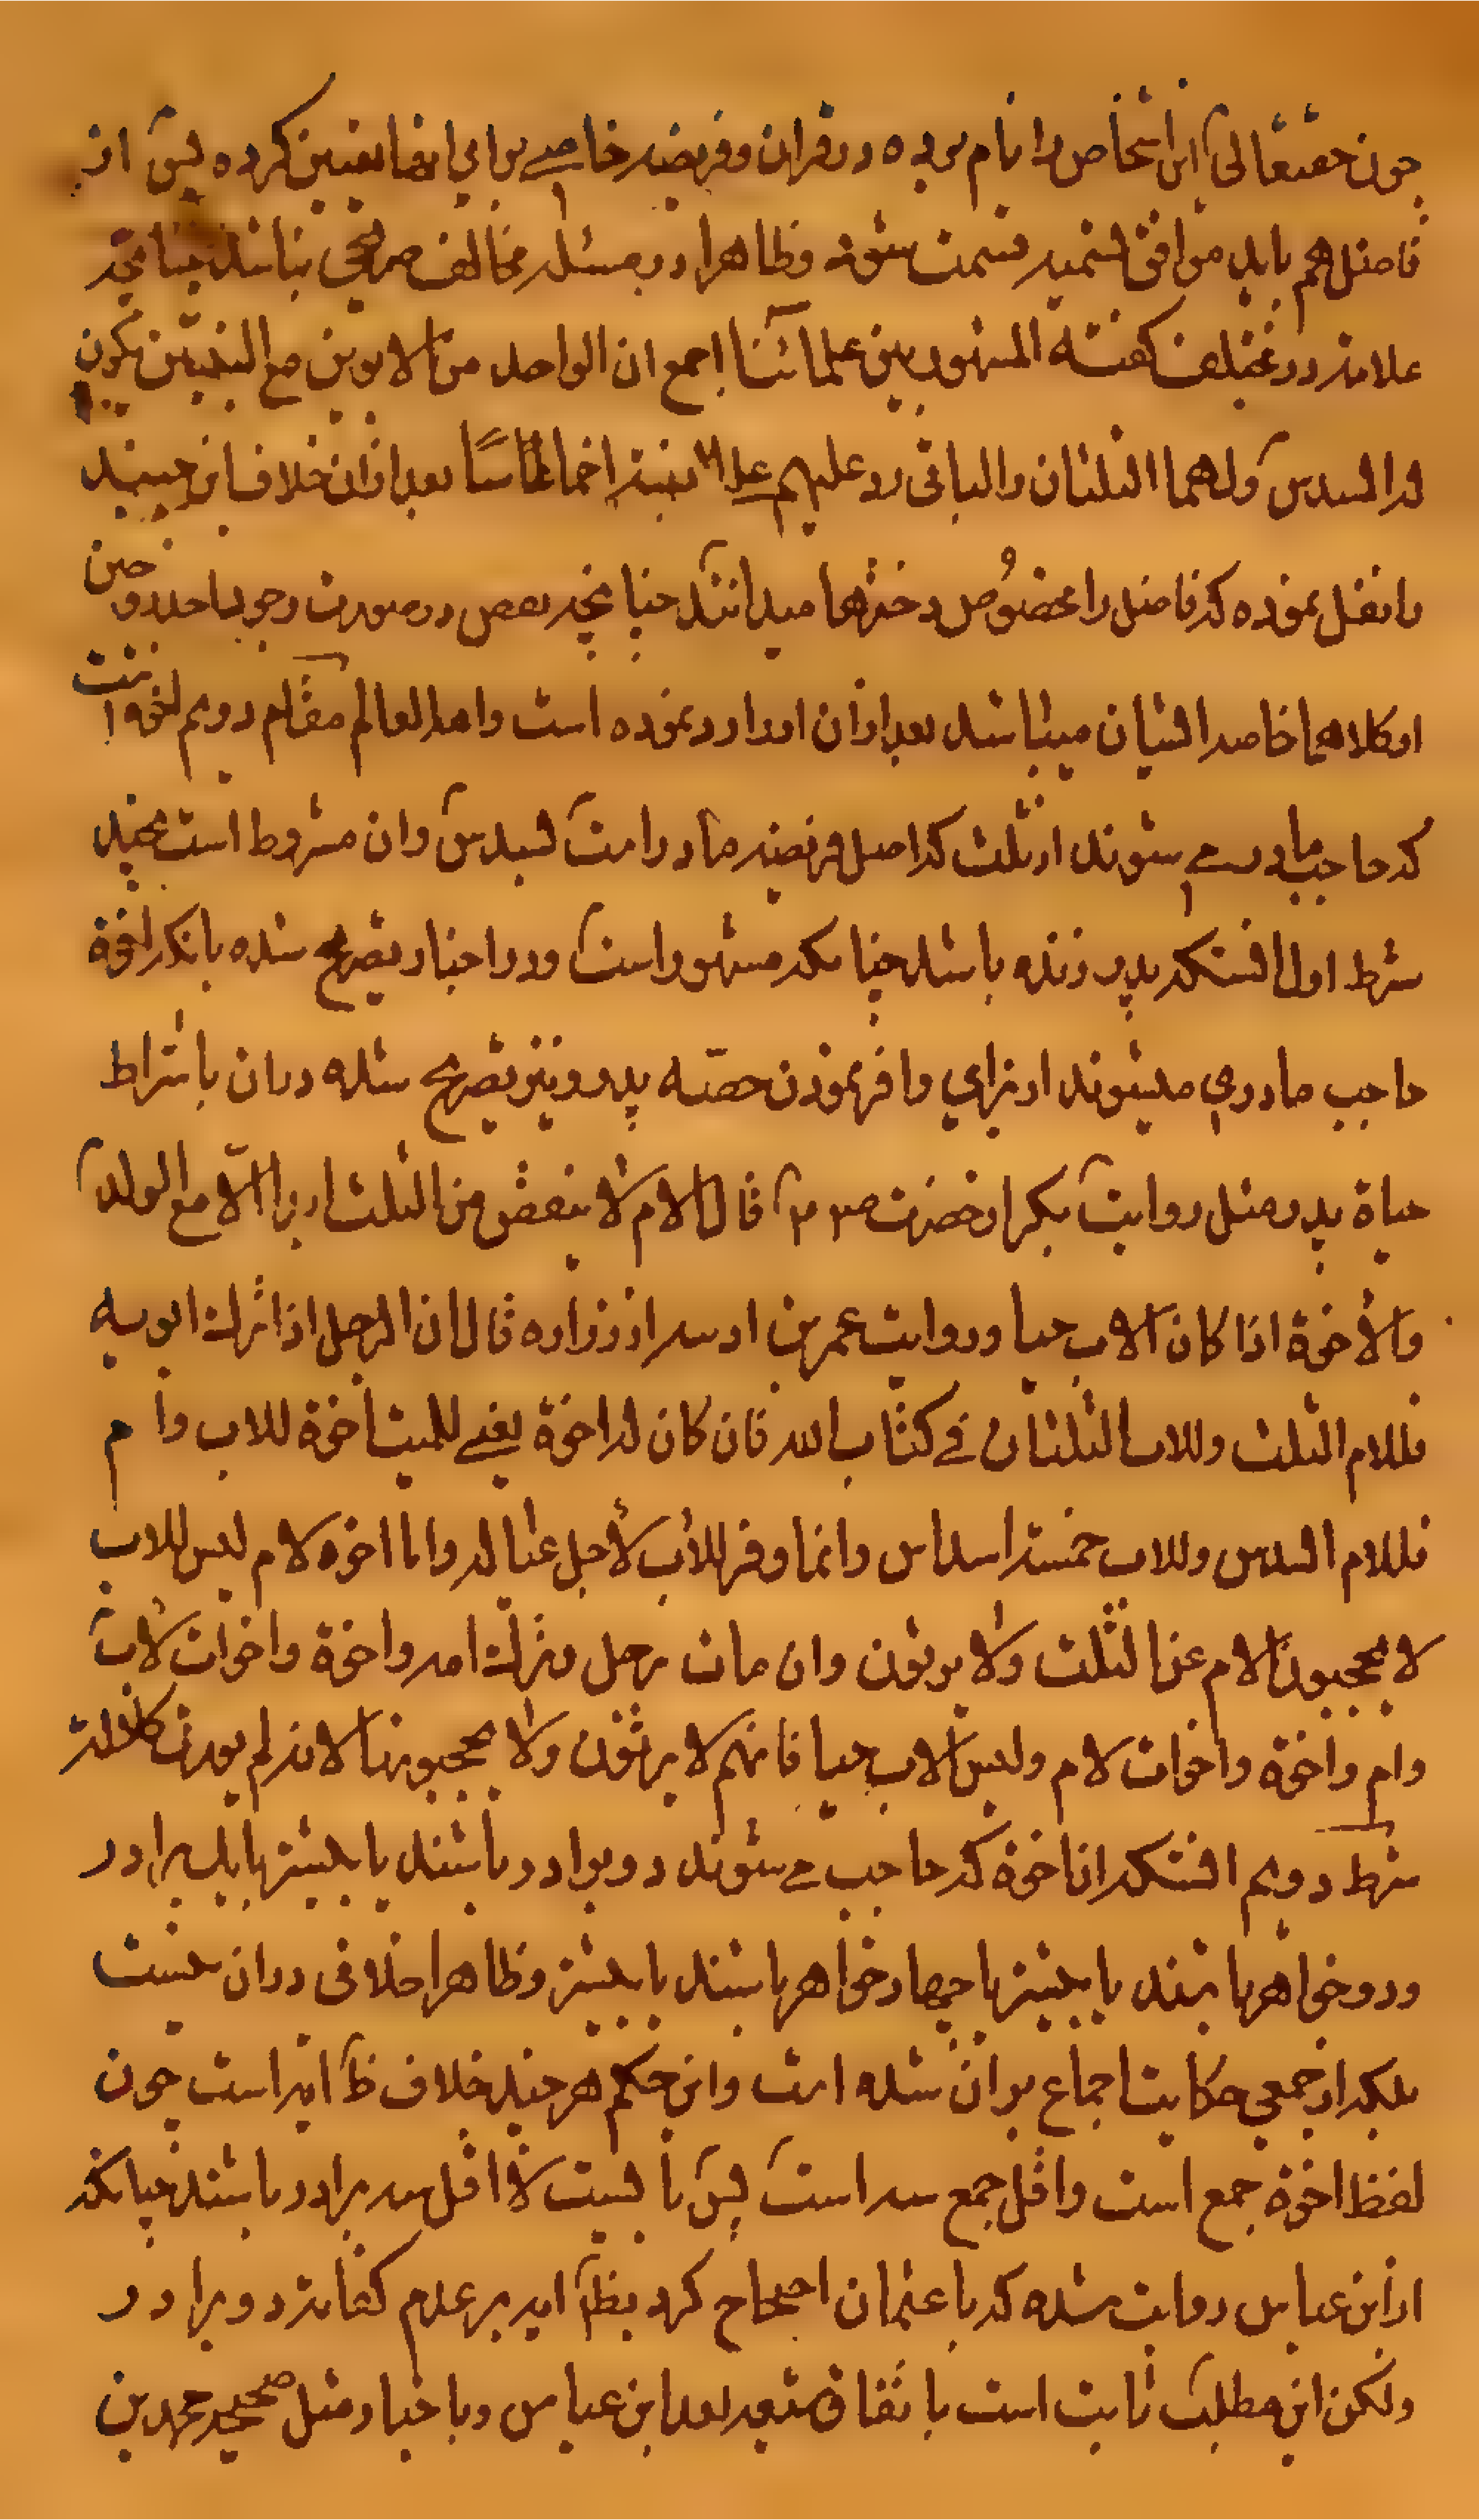 چون حقتعالی این اشخاص را نام برده در قران و فریضه خاصے برای اینها تعیین کرده پس از
فاضل هم باید موافق تسمیه قسمت شود و ظاهرا در مسئله مخالف صریحی نباشد چنانچه
علامه در مختلف گفته المشهور بین علمائنا اجمع ان الواحد من الابوین مع البنتین یکون
له السدس ولهما الثلثان والباقی رد علیهم علی نسبته اخماسا بعد ازان خلاف ابن جنید
را نقل نموده که فاضل را مخصوص دخترها میدانند چنانچه نقص در صورت زوج یا احد
او کلاهما خاصه ایشان میباشد بعد ازان اورا رد نموده است والله العالم مقام دویم اخوه است
که حاجب مادر مے شوند از ثلث که اصل فریضه مادر است بسدس وان مشروط است بچند
شرط اول انستکه پدر زنده باشد چنانکه مشهور است ودر اخبار تصریح شده بانکه اخوة
حاجب مادر میشوند از برای وافر نمودن حصه پدر ونیز تصریح شده دران باشتراط
حیاة پدر مثل روایت بکر از حضرت ص م قال الام لا ینقص من الثلث ابدا الّا مع الولد
والاخوة اذا کان الاب حیا وروایت عمر بن اذینه از زراره قال ان الرجل اذا ترک ابویه
فللام الثلث وللاب الثلثان فے کتاب الله فان کان له اخوة یعنے للمیت اخوة للاب وام
فللام السدس وللاب خمسة اسداس وانما وفر للاب لأجل عیاله واما اخوه لام لیس للاب
لا یحجبون الام عن الثلث ولا یرثون وان مات رجل وترک امه واخوة واخوات لاب
وام واخوة واخوات لام ولیس الاب حیا فانهم لا یرثون ولا یحجبونها لانه لم یورث کلالة
شرط دویم انستکه ان اخوة که حاجب مے شوند دو برادر باشند یا بیشتر یا یک برادر
ودو خواهر باشند یا بیشتر یا چهار خواهر باشند یا بیشتر وظاهرا خلافی دران نیست
بلکه از جمعی حکایت اجماع بر ان شده است واین حکم هر چند خلاف ظ ایه است چون
لفظ اخوة جمع است واقل جمع سه است پس بایست لا اقل سه برادر باشند چنانکه
از ابن عباس روایت شده که با عثمان احتجاج کرد بظ ایه بر عدم کفایة دو برادر
ولکن این مطلب ثابت است باتفاق بعد ابن عباس وباخبار مثل صحیحه محمد بن